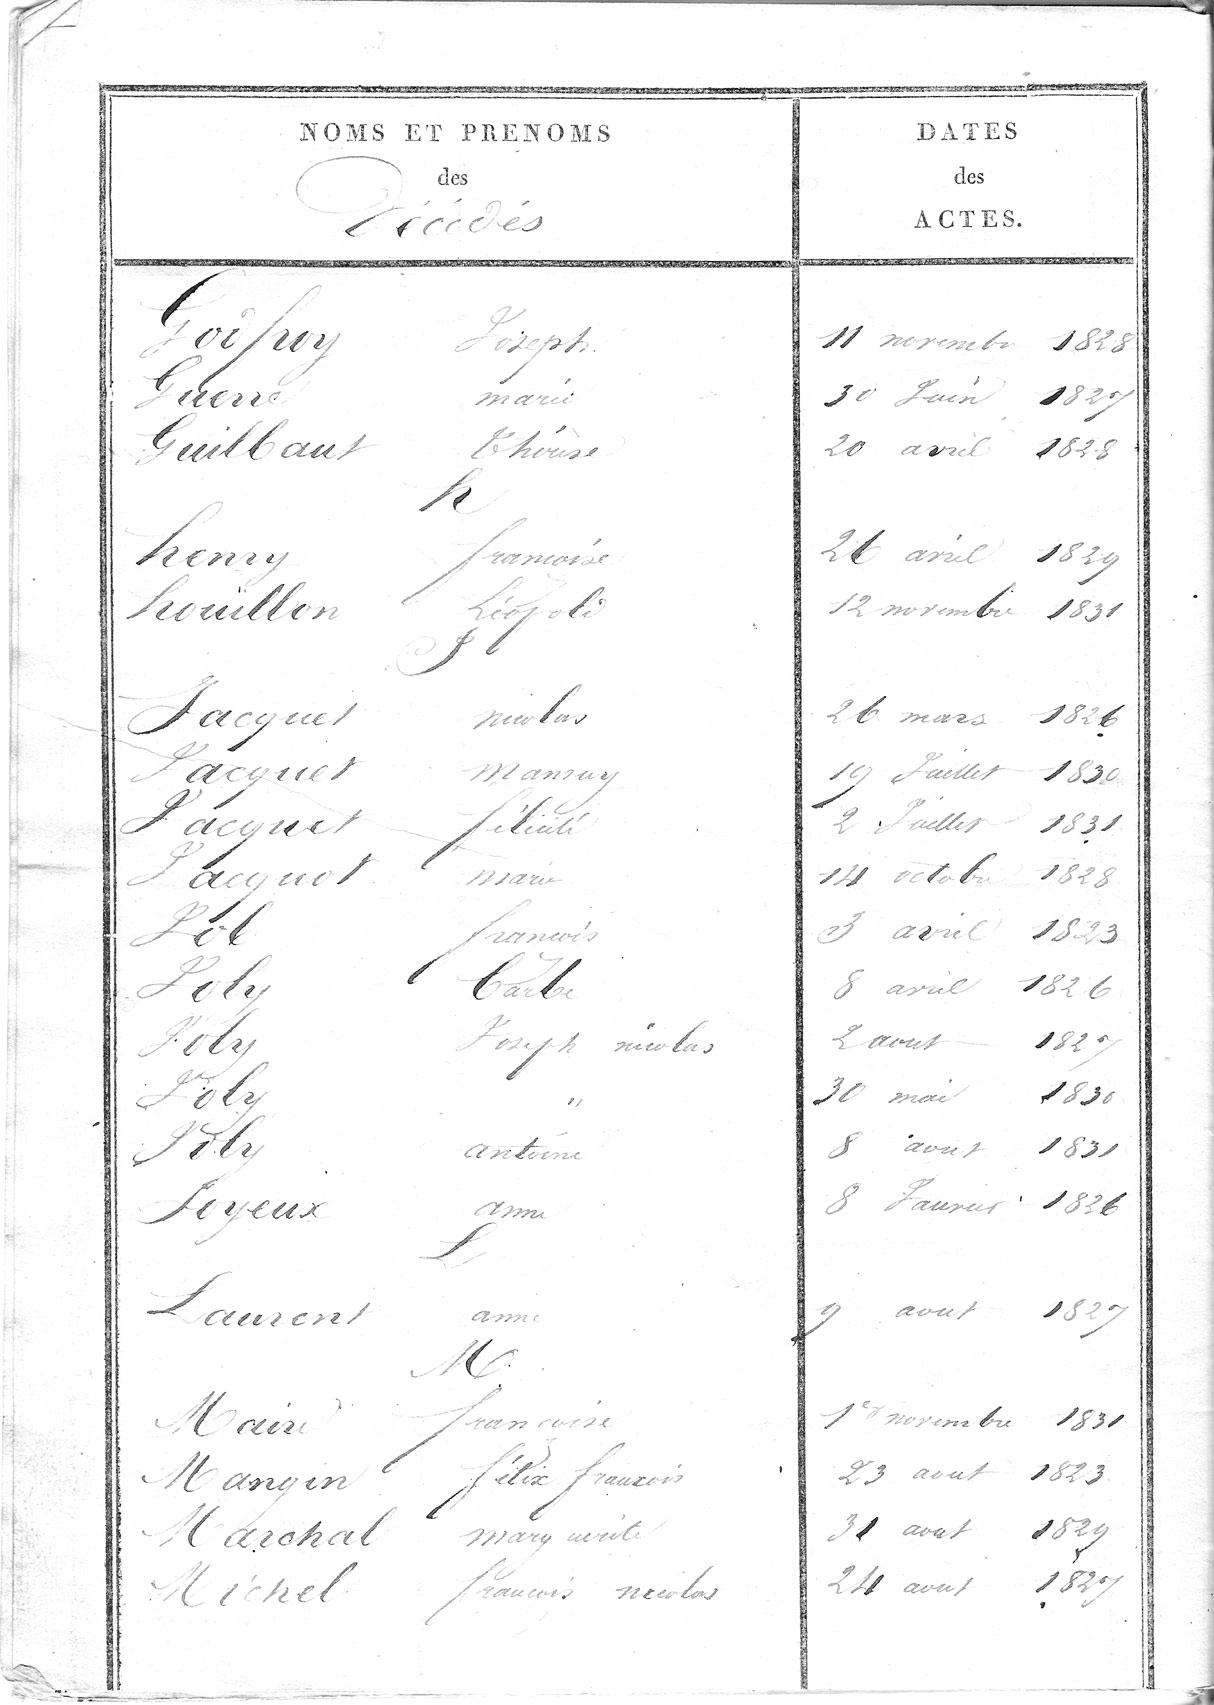 NOMS ET PRENOMS
des
Décédés
DATES
des
ACTES.
Godfroy Joseph 11 novembre 1828
Guerre marie 30 Juin 1827
Guilbaut thérèse 20 avril 1828
h
henry francoise 26 avril 1829
houillon Léopold 12 novembre 1831
J
Jacquet nicolas 26 mars 1826
Jacquet mansuy 19 Juillet 1830
Jacquet félicité 2 Juillet 1831
Jacquot marie 14 octobre 1828
Job françois 3 avril 1823
Joly barbe 8 avril 1826
Joly Joseph nicolas 2 aout 1827
Joly " 30 mai 1830
Joly antoine 8 aout 1831
Joyeux anne 8 Janvier 1826
L
Laurent anne 9 aout 1827
M
Maire françoise 1er novembre 1831
Mangin félix françois 23 aout 1823
Marchal marguerite 31 aout 1829
Michel francois nicolas 24 aout 1827